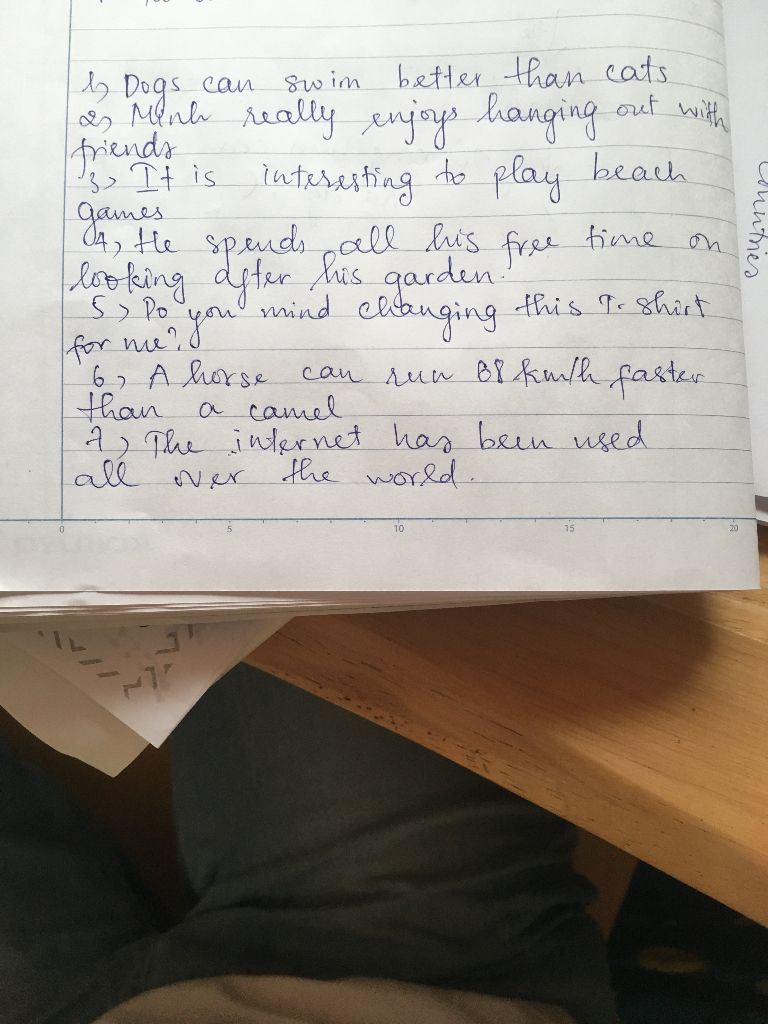 1) Dogs can swim better than cats
2) Minh really enjoys hanging out with
friends
3) It is interesting to play beach
games
4) He spends all his free time on
looking after his garden.
5) Do you mind changing this T-shirt
for me?
6) A horse can run 68 km/h faster
than a camel
7) The internet has been used
all over the world.
0 5 10 15 20
countries